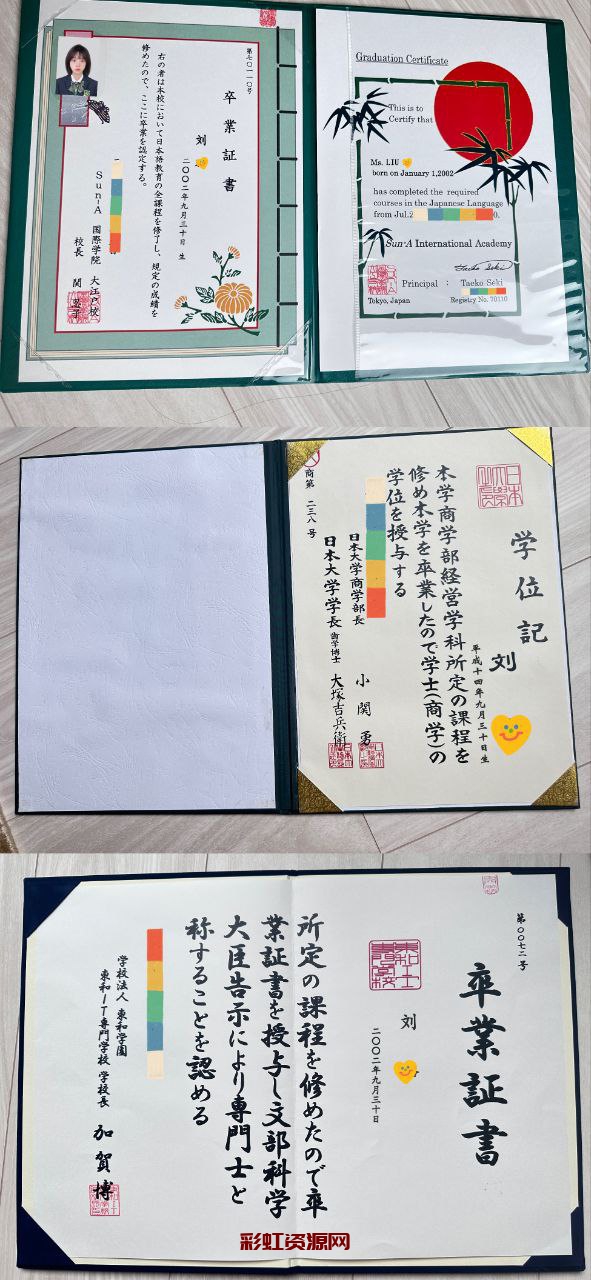 第七〇一一〇号
卒業証書
刘
二〇〇二年九月三十日 生
右の者は本校において日本語教育の全課程を修了し、規定の成績を
修めたので、ここに卒業を認定する。
Sun-A 国際学院 大江戸校
校長 関
Graduation Certificate
This is to
Certify that
Ms. LIU
born on January 1,2002
has completed the required
courses in the Japanese Language
from Jul.2 0.
Sun-A International Academy
Principal : Taeko Seki
Tokyo, Japan
Registry No. 70110
学位記
刘
平成十四年九月三十日生
本学商学部経営学科所定の課程を
修め本学を卒業したので学士(商学)の
学位を授与する
日本大学商学部長 小関 勇
日本大学学長 歯学博士 大塚吉兵衛
商第 二三八 号
第〇〇七二号
卒業証書
刘
二〇〇二年九月三十日
所定の課程を修めたので卒
業証書を授与し文部科学
大臣告示により専門士と
称することを認める
学校法人 東和学園
東和IT専門学校 学校長 加賀 博
彩虹资源网